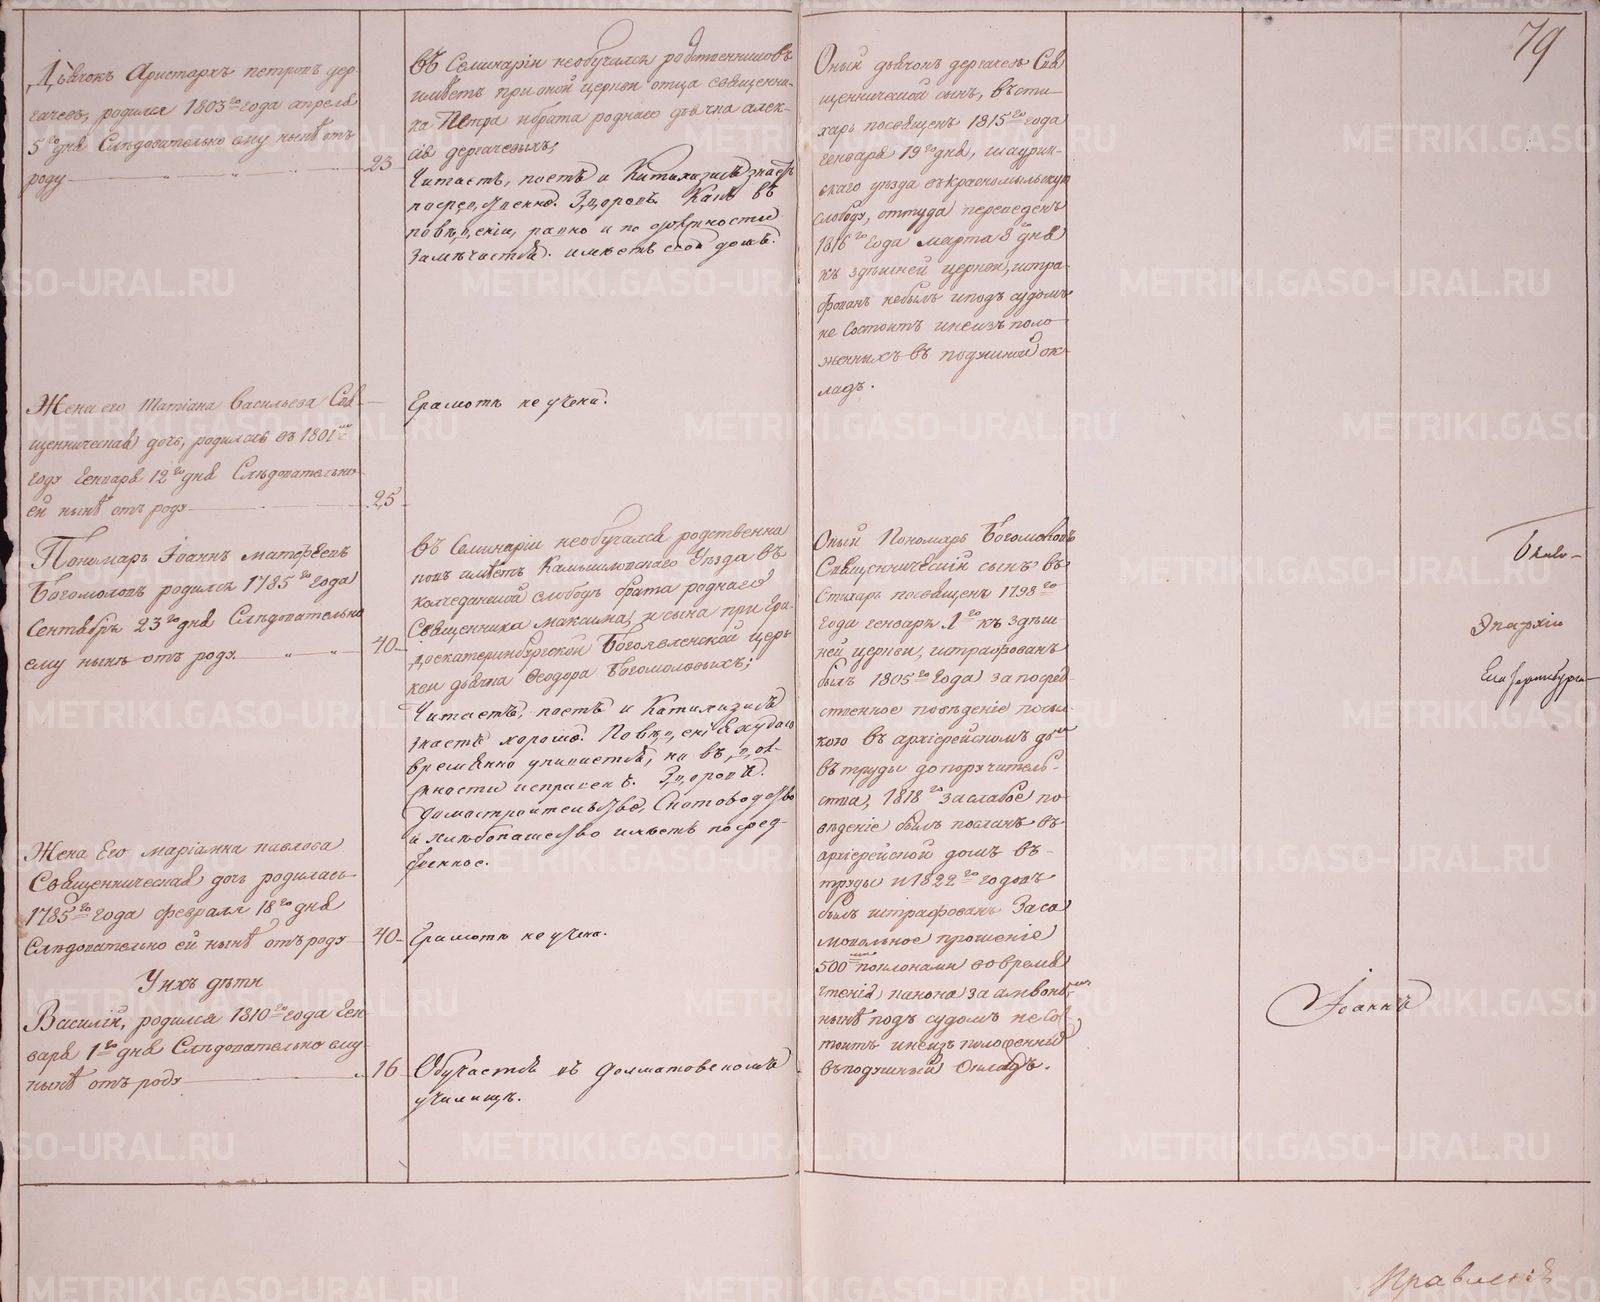 79
Дьячокъ Аристархъ петровъ дер-
гачевъ, родился 1803го года апреля
5го дня Слѣдовательно ему нынѣ отъ
роду 23
въ Семинаріи необучался родственниковъ
имѣетъ при оной церкви отца священни-
ка Петра ибрата роднаго дьячка алек-
сія дергачевыхъ;
Читаетъ, поетъ и Катихизисъ знаетъ
посредственно. Здоровъ. Какъ въ
поведеніи, равно и по должности
замѣчателенъ. имѣетъ свой домъ.
Оный дьячокъ дергачевъ Свя
щенническій сынъ, въсти-
харь посвященъ 1815го года
генваря 19го дня, шадрин-
скаго уѣзда въ Красномыльскую
слободу, оттуда переведенъ
1816го года марта 8го дня
къ здѣшней церкви, штра-
фованъ небылъ иподъ судомъ
не Состоитъ инеизъ поло
женныхъ въ подушной ок-
ладъ.
Жена его татіана васильева Свя
щенническая дочь, родилась въ 1801мъ
году генваря 12го дня Слѣдовательно
ей нынѣ отъ роду 25
Грамотѣ не учена.
Пономарь Іоаннъ матѳеевъ
Богомоловъ родился 1785го года
Сентября 23го дня Слѣдовательно
ему нынѣ отъ роду 40
въ Семинаріи необучался родственни
ковъ имѣетъ Камышловскаго Уѣзда въ
колчеданской слободѣ брата роднаго
Священника максима, исына при гра-
доекатеринбургской Богоявленской церь
кви дьячка Ѳеодора Богомоловыхъ;
Читаетъ, поетъ и Катихизисъ
знаетъ хорошо. Поведенія худаго
временно упивается, но въ дол-
жности исправенъ. Здоровъ.
Домостроительство, Скотоводство
и хлѣбопашество имѣетъ посред-
ственное.
Оный Пономарь Богомоловъ
Священническій сынъ въ
Стихарь посвященъ 1798го
года генваря 1го къ здѣш
ней церкви, штрафованъ
былъ 1805го года за посред
ственное поведеніе посыл
кою въ архіерейскомъ домѣ
въ труды допоручитель-
ства, 1818го заслабое по
веденіе былъ посланъ въ
архіерейской домъ въ-
труды и 1822го годовъ
былъ штрафованъ За са
мовольное прошеніе
500 поклонами вовремя
чтенія канона за амвономъ,
нынѣ подъ судомъ не Сос
тоитъ инеизъ положенныхъ
въ подушный Окладъ.
Жена Его маріамна павлова
Священническая дочь родилась
1785го года февраля 18го дня
Слѣдовательно ей нынѣ отъ роду 40
Грамотѣ не учена.
У нихъ дѣти
Василій, родился 1810го года Ген
варя 1го дня Слѣдовательно ему
нынѣ отъ роду 16
Обучается въ Долматовскомъ
училищѣ.
Благо-
Эпархіи
Екатеринбурга-
Іоаннъ
Правленія